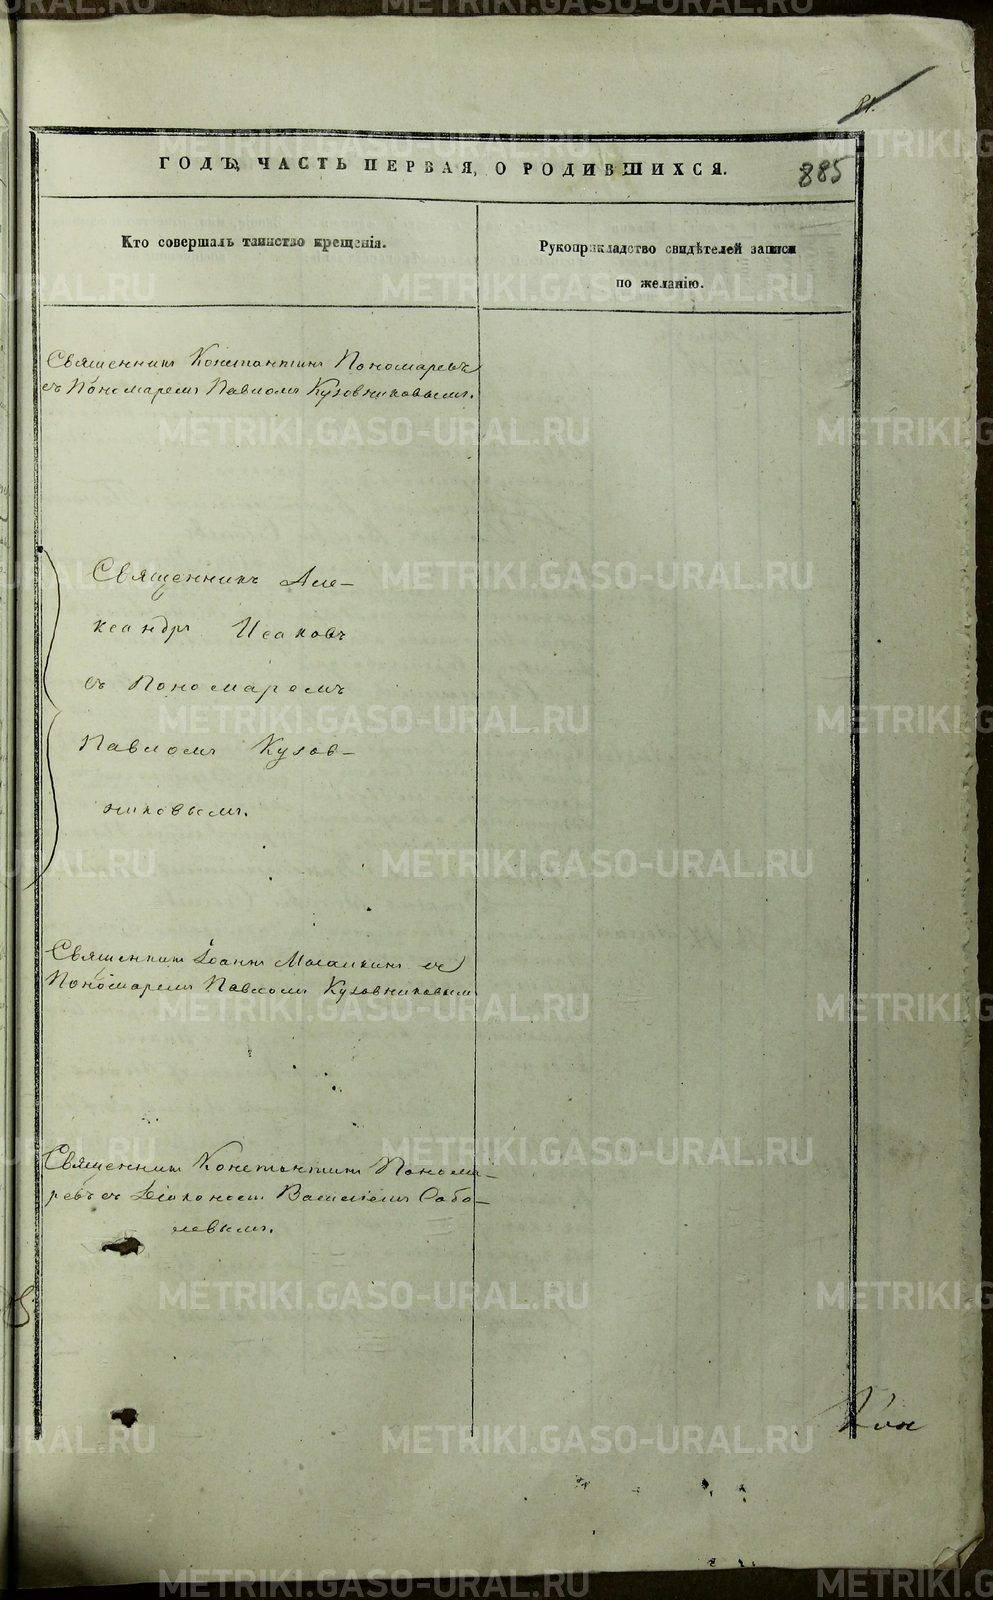 81.
885
ГОДЪ, ЧАСТЬ ПЕРВАЯ, О РОДИВШИХСЯ.
Кто совершалъ таинство крещенія.
Рукоприкладство свидѣтелей записи
по желанію.
Священникъ Константинъ Пономаревъ
съ Пономаремъ Павломъ Кузовниковымъ.
Священникъ Але-
ксандръ Исаковъ
съ Пономаремъ
Павломъ Кузов-
никовымъ.
Священникъ Іоаннъ съ
Пономаремъ Павломъ Кузовниковымъ
Священникъ Константинъ Понома-
ревъ съ Діакономъ Василіемъ Собо-
левымъ.
METRIKI.GASO-URAL.RU